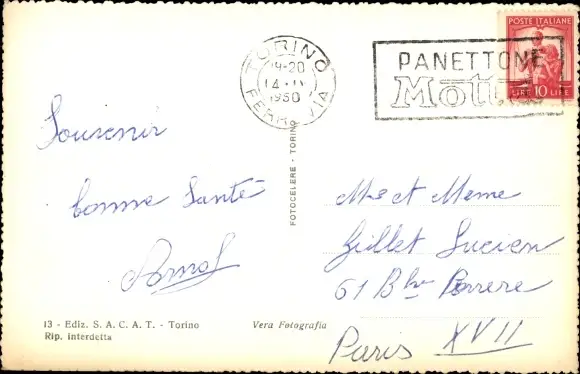 POSTE ITALIANE
LIRE 10 LIRE
TORINO
19-20
14
1950
FERROVIA
PANETTONE
Motta
Souvenir
bonne Santé
FOTOCELERE - TORINO
Mr et Meme
Gillet Lucien
61 Ber
Paris XVII
13 - Ediz. S. A. C. A. T. - Torino
Rip. interdetta
Vera Fotografia